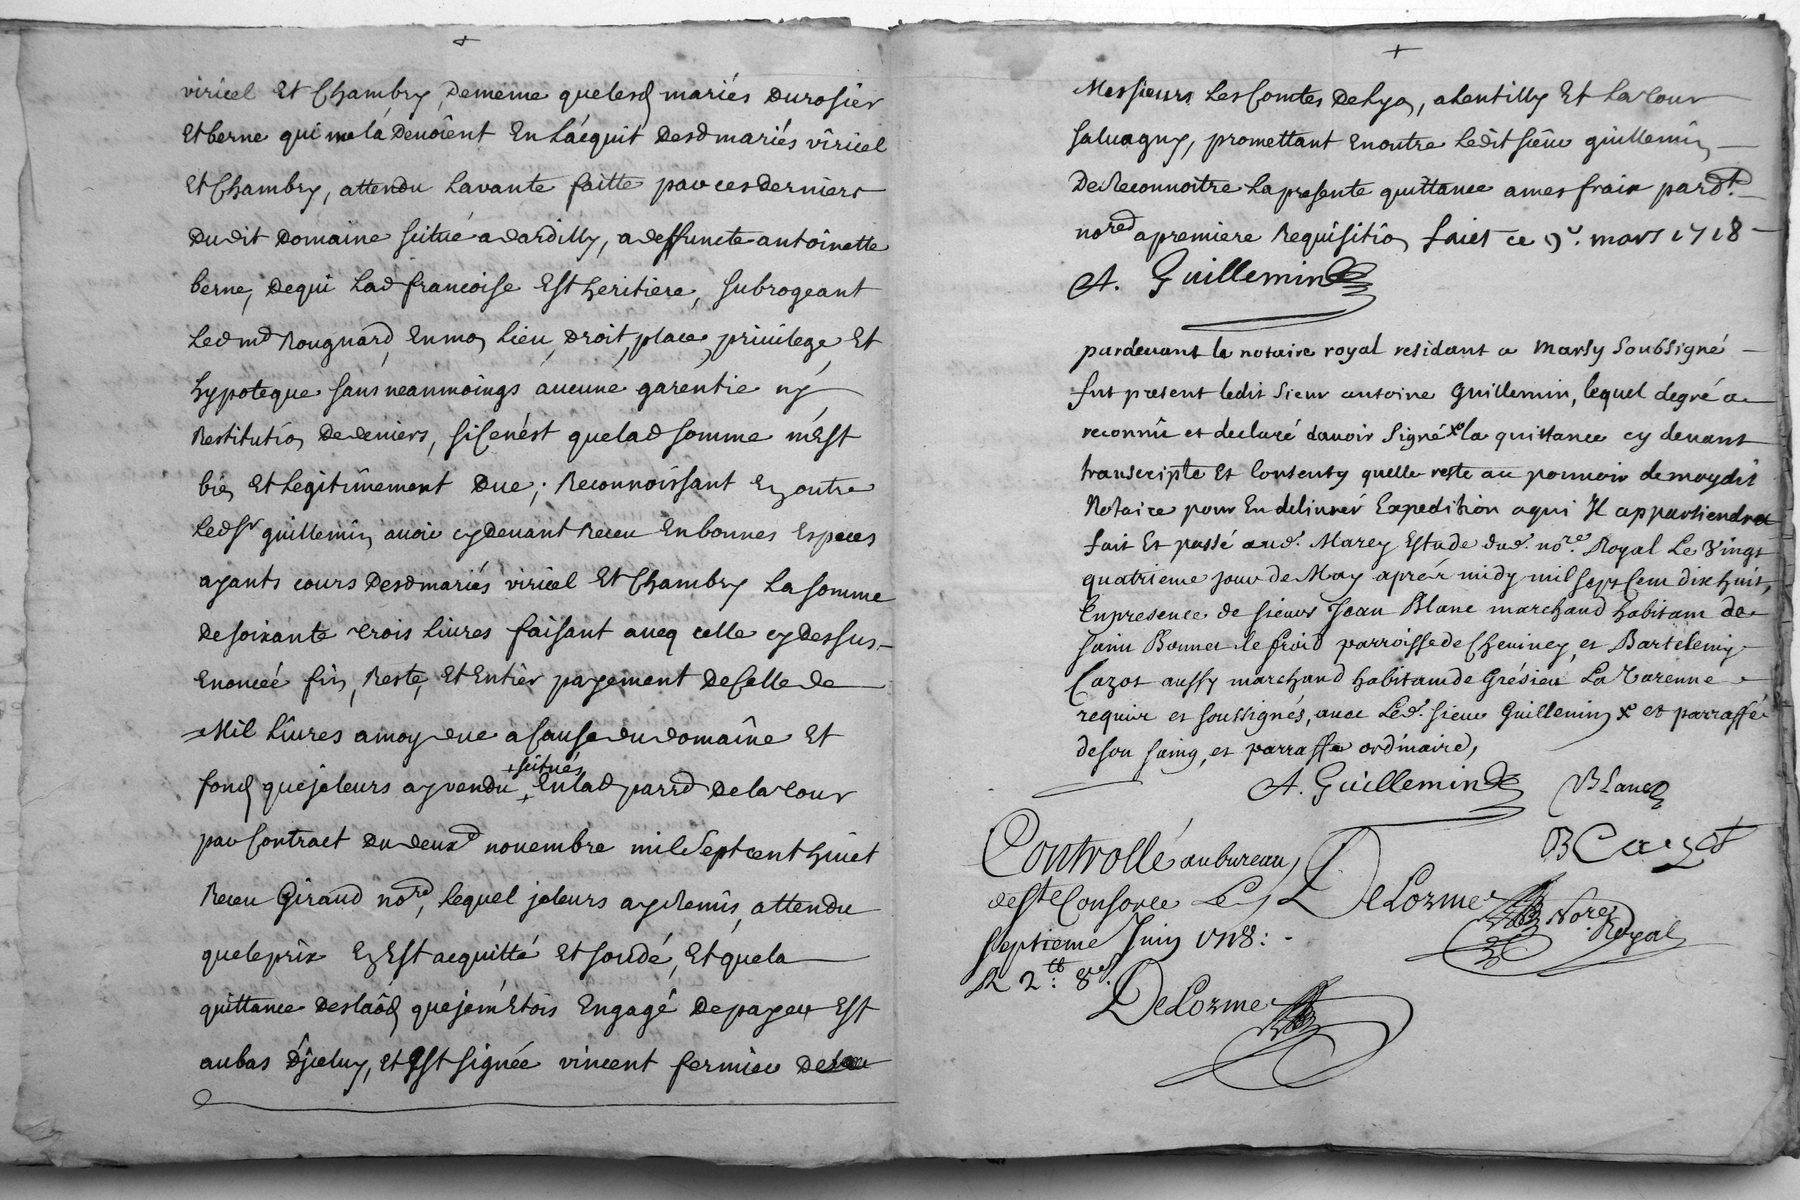 viricel Et Chambry, Dememe quelesd mariés Durosier
Et berne qui me la Devoient En L'acquit Desd mariés viricel
Et Chambry, attendu La vante faitte par ces Derniers
Dudit Domaine scitué a dardilly, a deffuncte antoinette
berne, De qui Lad francoise Est heritiere, subrogeant
Led md Rougnard, En mon Lieu, Droit, place, privilege, Et
hypoteque sans neanmoings aucune garentie ny
Restitution De deniers, si Ce n'est que lad somme m'Est
bien Et Legitimement Due; Reconnoissant En outre
Led sr guillemin avoir cy devant Receu En bonnes Especes
ayants cours Desd mariés viricel Et Chambry La somme
De soixante trois Livres faisant avecq celle cy Dessus
Enoncée fin, Reste, Et Entier payement De Celle de
Mil Livres a moy due a Cause du domaine Et
+ scitués
fond que je leurs ay vendu + En lad parr De la tour
par Contract Du deuxe novembre mil Sept cent huict
Receu Girand nore, Lequel je leurs ay Remis, attendu
que le prix En Est acquitté Et soudé, Et que la
quittance Des laod que je m'Etois Engagé De payer Est
au bas D'jceluy, Et Est signée vincent fermier De
Messieurs Les Comtes De Lyon, a Lentilly Et La tour
salvagny, promettant En outre Ledit sieur guillemin
De Reconnoitre La presente quittance a mes frais pardt
nored a premiere Requisition faict ce 9e. mars 1718
A. Guillemin
pardevant le notaire royal residant a Marsy Soubsigné
fut present ledit Sieur antoine Guillemin, lequel de gré a
reconnu et declaré d'avoir Signé x la quittance cy devant
transcripte Et Consenty quelle reste au pouvoir de moydit
Notaire pour En delivrer Expedition a qui Il appartiendra
fait Et passé aud. Marcy Estude dud. nore. Royal Le Vingt
quatrieme jour de May aprés midy mil sept Cent dix huit,
En presence de sieurs Jean Blanc marchand habitant de
saint Bonnet le froid parroisse de Cheviney, et Bartelemy
Cazot aussy marchand habitant de Grésieu La Varenne
requis et soussignés, avec Led. sieur Guillemin x et parraffé
de son saing, et parraffe ordinaire,
A. Guillemin
Blanc
B Cazot
Controllé au bureau
de ste Consorce Le
septieme Juin 1718:
R 2tt: 8s.
DeLorme
Nore Royal
DeLorme